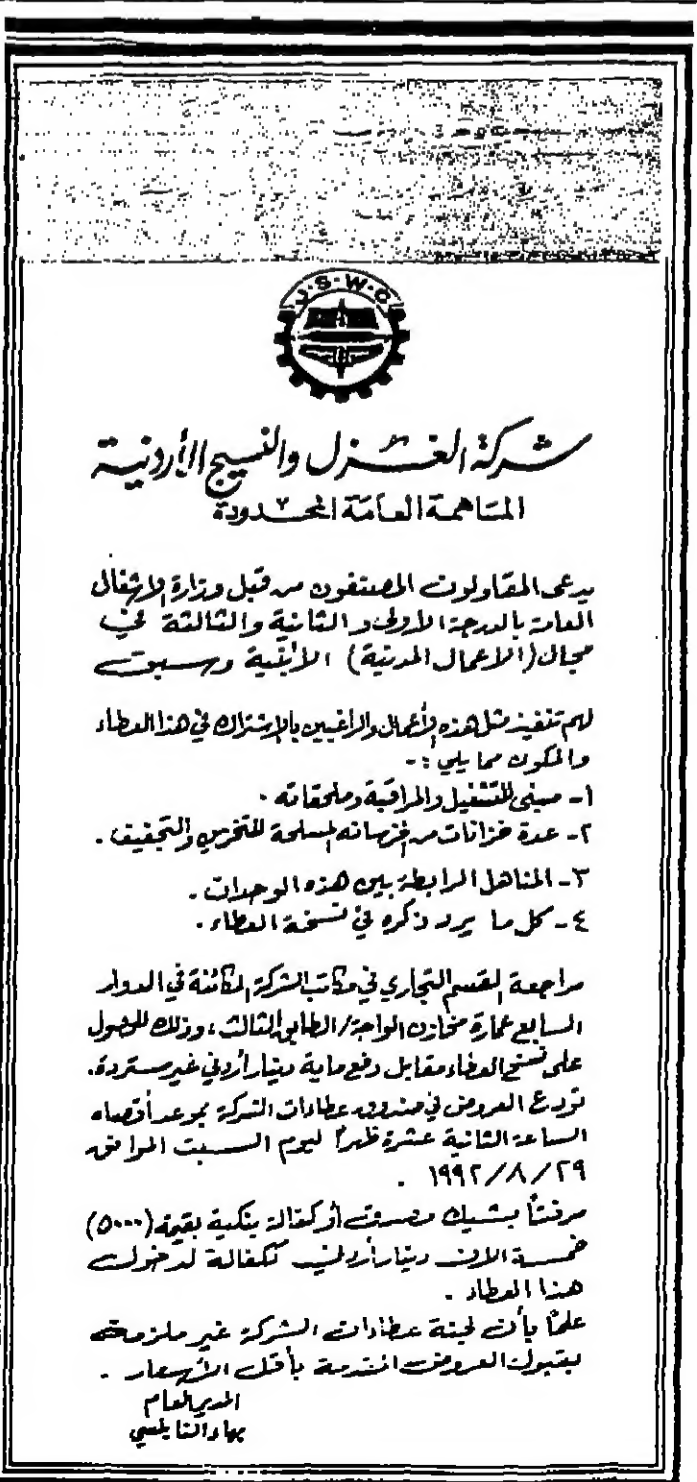 J.S.W.C
شركة الغزل والنسيج الأردنية
المساهمة العامة المحدودة
يدعى المقاولون المصنفون من قبل وزارة الاشغال
العامة بالدرجة الأولى والثانية والثالثة في
مجال (الاعمال المدنية) الأبنية وسبق
لهم تنفيذ مثل هذه الأعمال والراغبين بالإشتراك في هذا العطاء
والمكون مما يلي :-
١- مبنى للتشغيل والمراقبة وملحقاته .
٢- عدة خزانات من الخرسانه المسلحة للتخزين والتجفيف .
٣- المناهل الرابطة بين هذه الوحدات .
٤- كل ما يرد ذكره في نسخة العطاء .
مراجعة القسم التجاري في مكاتب الشركة الكائنة في الدوار
السابع عمارة مخازن الواحة / الطابق الثالث ، وذلك للحصول
على نسخ العطاء مقابل دفع ماية دينار أردني غير مستردة.
تودع العروض في صندوق عطاءات الشركة بموعد أقصاه
الساعة الثانية عشرة ظهراً ليوم السبت الموافق
١٩٩٢/٨/٢٩ .
مرفقاً بشيك مصدق أو كفالة بنكية بقيمة (٥٠٠٠)
خمسة الاف دينار أردني ككفالة لدخول
هذا العطاء .
علماً بأن لجنة عطاءات الشركة غير ملزمة
بقبول العروض المقدمة بأقل الأسعار .
المدير العام
بهاء النابلسي